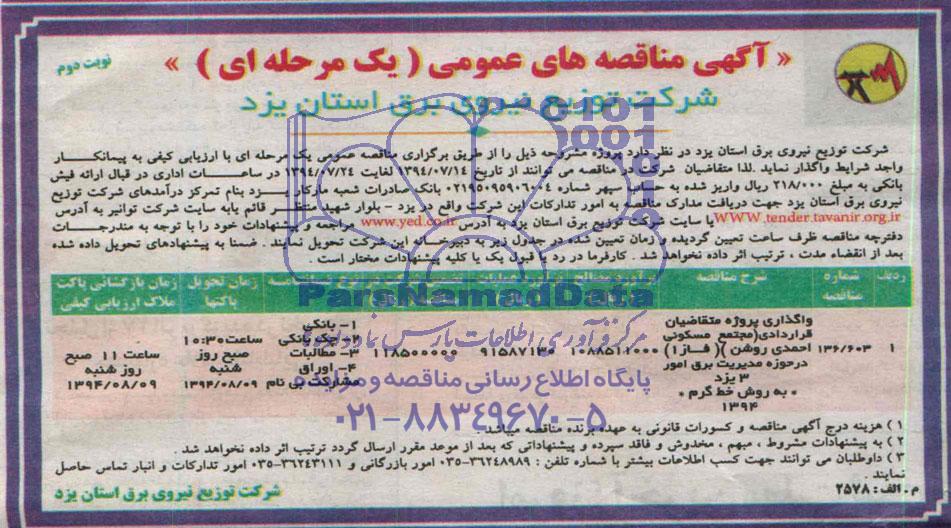 نوبت دوم
« آگهی مناقصه های عمومی ( یک مرحله ای ) »
شرکت توزیع نیروی برق استان یزد
شرکت توزیع نیروی برق استان یزد در نظر دارد پروژه مشروحه ذیل را از طریق برگزاری مناقصه عمومی یک مرحله ای با ارزیابی کیفی به پیمانکار
واجد شرایط واگذار نماید .لذا متقاضیان شرکت در مناقصه می توانند از تاریخ ۱۳۹۴/۰۷/۱۴ لغایت ۱۳۹۴/۰۷/۲۴ در ساعات اداری در قبال ارائه فیش
بانکی به مبلغ ۲۱۸/۰۰۰ ریال واریز شده به حساب سپهر شماره بانک صادرات شعبه مارکار یزد بنام تمرکز درآمدهای شرکت توزیع
نیروی برق استان یزد جهت دریافت مدارک مناقصه به امور تدارکات این شرکت واقع در یزد - بلوار شهید منتظر قائم یابه سایت شرکت توانیر به آدرس
WWW.tender.tavanir.org.ir یا سایت شرکت توزیع برق استان یزد به آدرس www.yed.co.ir مراجعه و پیشنهادات خود را با توجه به مندرجات
دفترچه مناقصه ظرف ساعت تعیین گردیده و زمان تعیین شده در جدول زیر به دبیرخانه این شرکت تحویل نمایند . ضمنا به پیشنهادهای تحویل داده شده
بعد از انقضاء مدت ، ترتیب اثر داده نخواهد شد . کارفرما در رد یا قبول یک یا کلیه پیشنهادات مختار است .
ردیف شماره مناقصه شرح مناقصه زمان تحویل پاکتها زمان بازگشائی پاکت ملاک ارزیابی کیفی
۱ ۱۳۶/۶۰۳
واگذاری پروژه متقاضیان
قراردادی(مجتمع مسکونی
احمدی روشن )( فاز۱)
درحوزه مدیریت برق امور
۳ یزد
* به روش خط گرم *
۱۳۹۴
۱۰۸۸۵۱۱۰۰۰ ۹۱۵۸۷۱۳۰ ۱۱۸۵۰۰۰۰۰
۱- بانکی
۲- چک بانکی
۳- مطالبات
۴- اوراق
مشارکت بی نام
ساعت ۱۰:۳۰
صبح روز
شنبه
۱۳۹۴/۰۸/۰۹
ساعت ۱۱ صبح
روز شنبه
۱۳۹۴/۰۸/۰۹
ParsNamadData
مرکز فرآوری اطلاعات پارس نماد داده ها
پایگاه اطلاع رسانی مناقصه و مزایده
۰۲۱-۸۸۳۴۹۶۷۰-۵
۱ ) هزینه درج آگهی مناقصه و کسورات قانونی به عهده برنده مناقصه میباشد.
۲ ) به پیشنهادات مشروط ، مبهم ، مخدوش و فاقد سپرده و پیشنهاداتی که بعد از موعد مقرر ارسال گردد ترتیب اثر داده نخواهد شد.
۳ ) داوطلبان می توانند جهت کسب اطلاعات بیشتر با شماره تلفن : ۳۶۲۴۸۹۸۹-۰۳۵ امور بازرگانی و ۳۶۲۴۳۱۱۱-۰۳۵ امور تدارکات و انبار تماس حاصل
نمایند .
م . الف : ۲۵۷۸
شرکت توزیع نیروی برق استان یزد